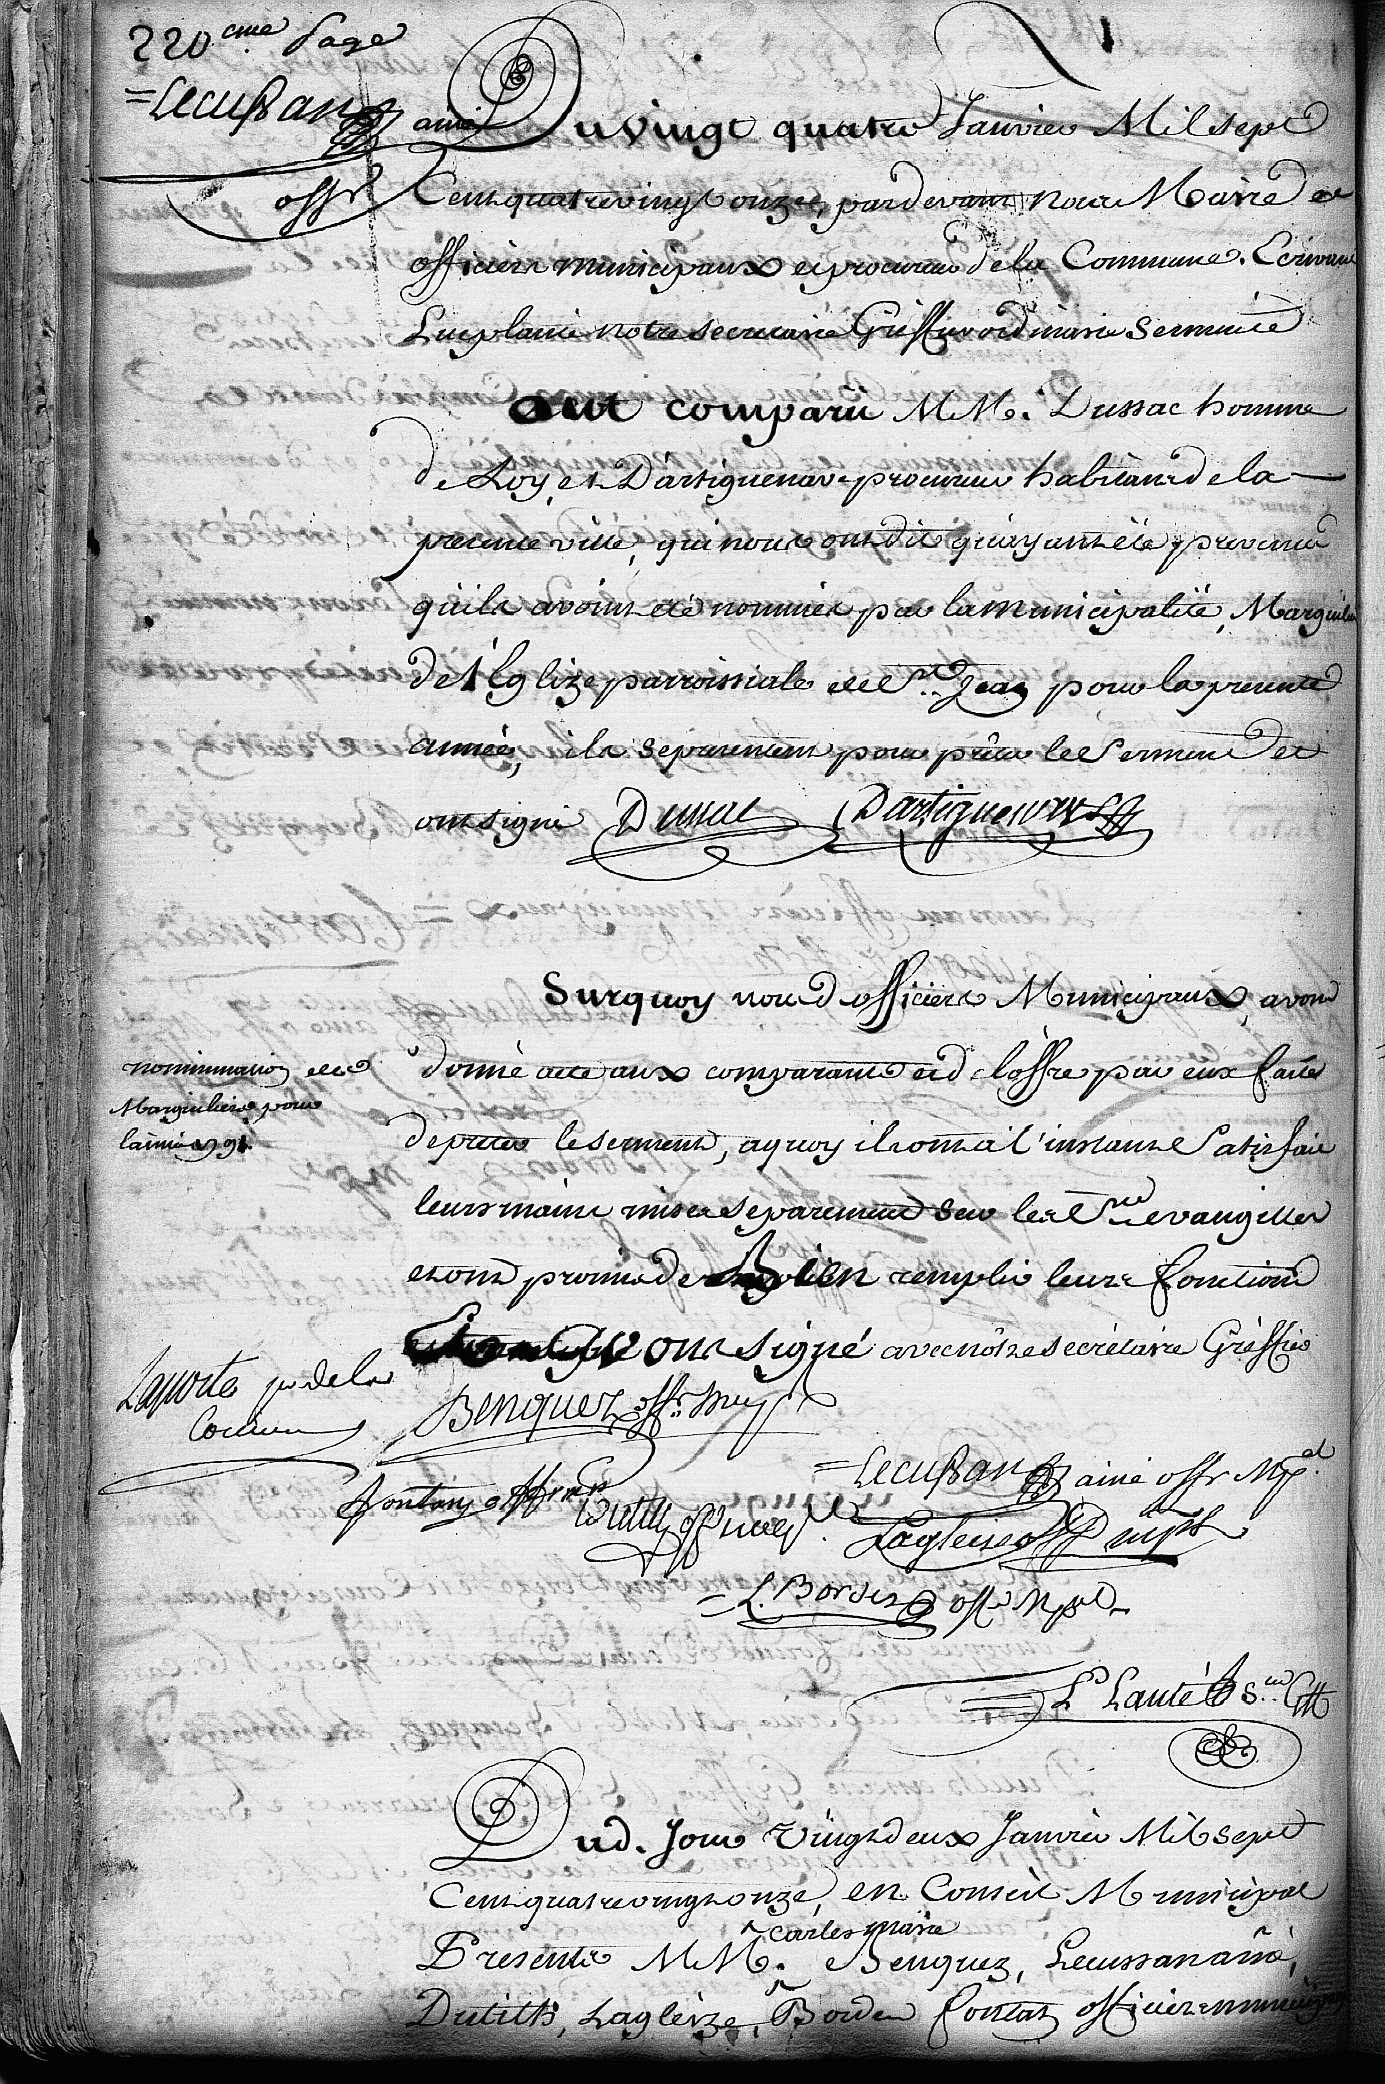 220eme Page
=Lecussan ainé
offr
Du vingt quatre Janvier Mil sept
Cent quatrevingt onze, pardevant nous Maire et
officiers municipaux et procureur de la Commune. Ecrivant
Luy plaine notre secretaire Greffier ordinaire sermenté
Ont comparü MM. Dussac homme
de Loy, et Dartiguenave procureur habitans de la
presente ville, qui nous ont dit qu'ayant été prevenus
qu'ils avoint été nommés par la municipalité, Marguilers
de l'Eglize parroissiale de St. Jean pour la presente
année, ils se presentent pour prêter le serment et
ont signé Dussac Dartiguenave
Surquoy nous d officiers Municipaux, avons
nommination de
Marguiliers pour
lannée 1791.
donné acte aux comparants de l'offre par eux faite
de preter le serment, a quoy ils ont a l'instant satisfait
leurs mains mises separement sur les Sts evangilles
et ont promis de Bien remplir leurs fonctions
ont signé avec nôtre secrétaire Gréffier
Laporte pr de la
Comune
Benquez offr. mupl
=Lecussan ainé offr Mpal.
fontan offr mpl
Dutilh offr mupl.
Lagleise off mpl
=L. Bordes offr Mpal
Ls Lanté ser. Gff
Dud. Jour vingt deux Janvier Mil sept
Cent quatrevingt onze, en Conseil Municipal
Carles maire
Presents MM. Benquez, Lecussan ainé,
Dutilh, Lagleize, Bordes fontan officiers municipaux